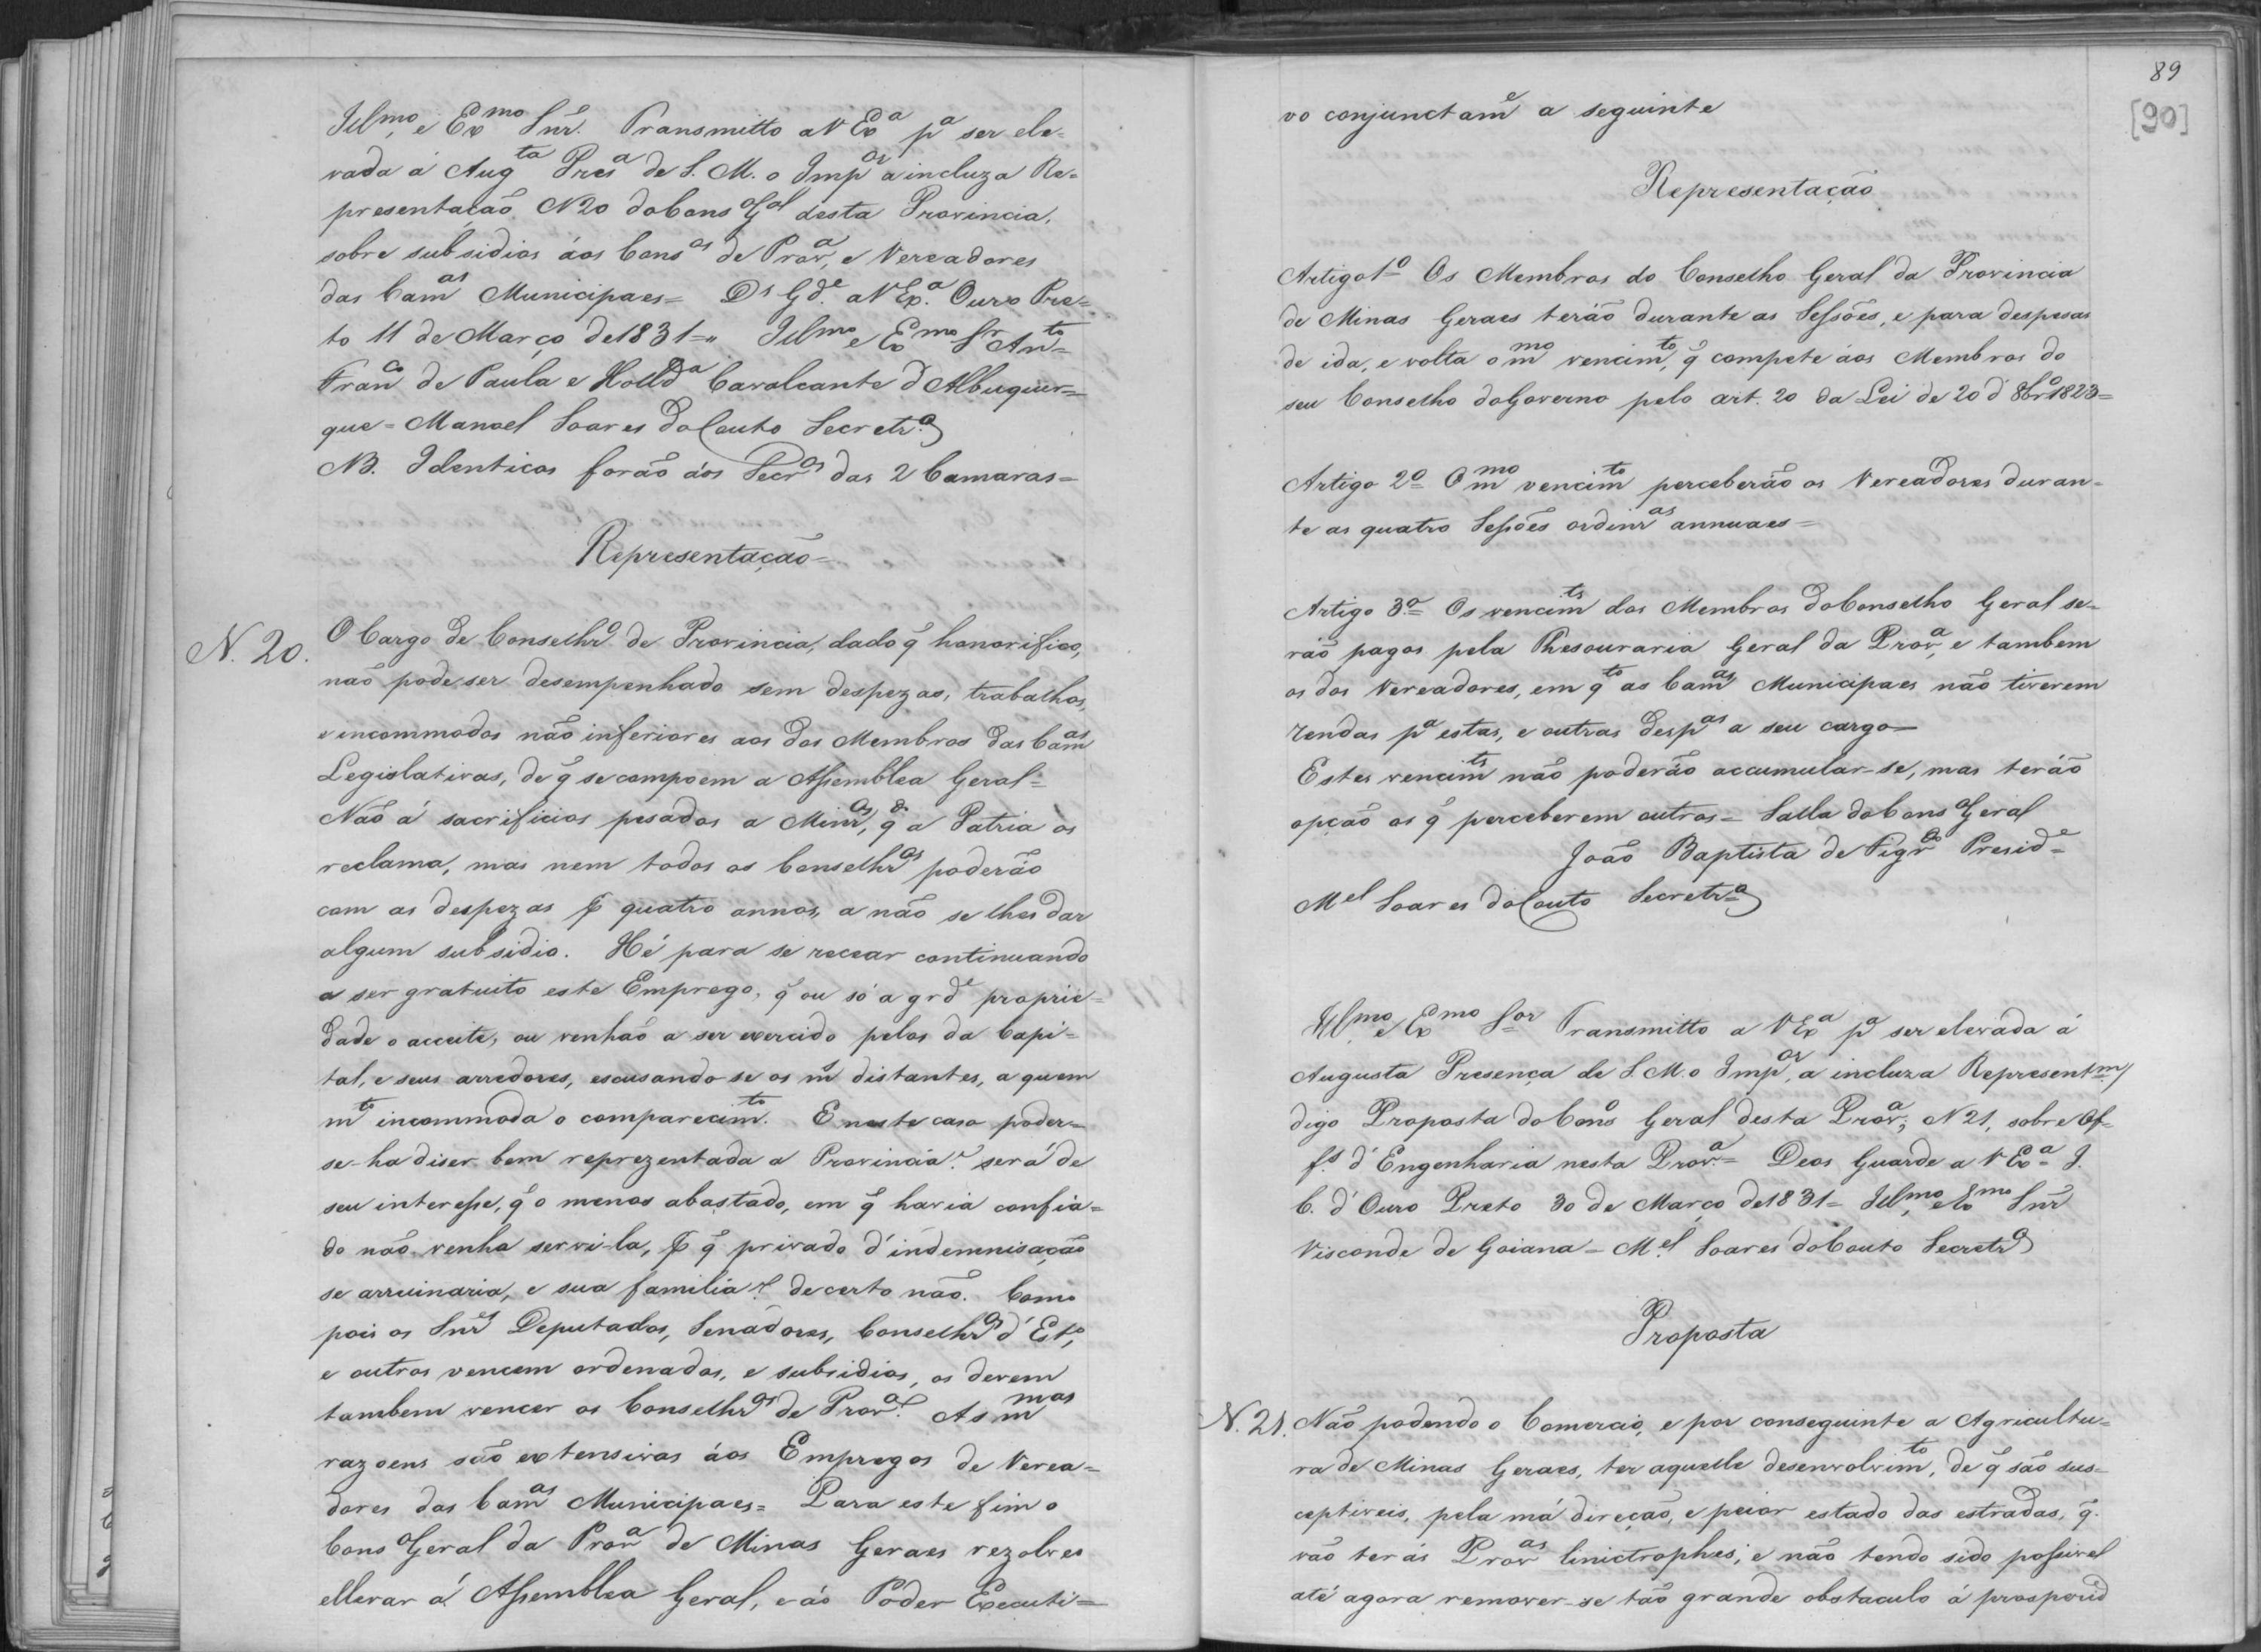 Illmo, e Exmo Snr. Transmitto a V Exa pa ser ele=
vada á Augta Presa de S. M. o Impor a incluza Re=
presentação N 20 do Conso Gal desta Provincia,
sobre subsidios áos Consos de Prova, e Vereadores
das Camas Municipaes = Ds Gde. a V Exa. Ouro Pre=
to 11 de Março de 1831 =" Illmo e Exmo Sr Anto=
Franco de Paula e Hollda Cavalcante d'Albuquer=
que = Manoel Soares do Couto Secretro
NB. Identicos forão áos Secros das 2 Camaras =
Representação =
N. 20. O Cargo de Conselhro de Provincia, dado q̃ honorifico,
não pode ser desempenhado sem despezas, trabalhos,
e incommodos não inferiores aos dos Membros das Camas
Legislativas, de q̃ se compoem a Assemblea Geral =
Não á sacrificios pesados a Minros, qdo a Patria os
reclama, mas nem todos os Conselhros poderão
com as despezas p quatro annos, a não se lhes dar
algum subsidio. Hé para se recear continuando
a ser gratuito este Emprego, q̃ ou só a grde proprie=
dade o acceite, ou venhão a ser exercido pelos da Capi=
tal, e seus arredores, escusando-se os m distantes, a quem
mto incommoda o comparecimto. E neste caso poder=
se-ha diser bem reprezentada a Provincia? será de
seu interesse, q̃ o menos abastado, em q̃ havia confia=
do não venha servi-la, p q̃ privado d'indemnisação
se arruinaria, e sua familia? de certo não. Como
pois os Snres Deputados, Senadores, Conselhros d'Esto,
e outros vencem ordenados, e subsidios, os devem
tambem vencer os Conselhros de Prova? As mmas
razoens são extensivas áos Empregos de Verea=
dores das Camas Municipaes = Para este fim o
Conso Geral da Prova de Minas Geraes rezolveo
ellevar á Assemblea Geral, e áo Poder Executi=
89
[90]
vo conjunctame a seguinte
Representação
Artigo 1o Os Membros do Conselho Geral da Provincia
de Minas Geraes terão durante as Sessões, e para despesas
de ida, e volta o mmo vencimto, q̃ compete áos Membros do
seu Conselho do Governo pelo art. 20 da Lei de 20 d' 8bro 1823 =
Artigo 2o O mmo vencimto perceberão os Vereadores duran=
te as quatro Sessões ordinras annuaes =
Artigo 3o Os vencimts dos Membros do Conselho Geral se=
rão pagos pela Thesouraria Geral da Prova, e tambem
os dos Vereadores, em qto as Camas Municipaes não tiverem
rendas pa estas, e outras despas a seu cargo =
Estes vencimts não poderão accumular-se, mas terão
opção os q̃ perceberem outros = Salla do Conso Geral
João Baptista de Figrdo Preside =
Mel Soares do Couto Secretro
Illmo, e Exmo Sor Transmitto a V Exa pa ser elevada á
Augusta Presença de S. M. o Impor, a incluza Representm/
digo Proposta do Conso Geral desta Prova, N 21, sobre Of=
fs d'Engenharia nesta Prova. = Deos Guarde a V Exa = I.
C. d'Ouro Preto 30 de Março de 1831 = Illmo, e Exmo Snr
Visconde de Goiana = Mel Soares do Couto Secretro
Proposta
N. 21. Não podendo o Comercio, e por conseguinte a Agricultu=
ra de Minas Geraes, ter aquelle desenvolvimto, de q̃ são sus=
ceptiveis, pela má direção, e peior estado das estradas, q̃.
vão ter ás Provas linictrophes; e não tendo sido possivel
até agora remover-se tão grande obstaculo á prosperid